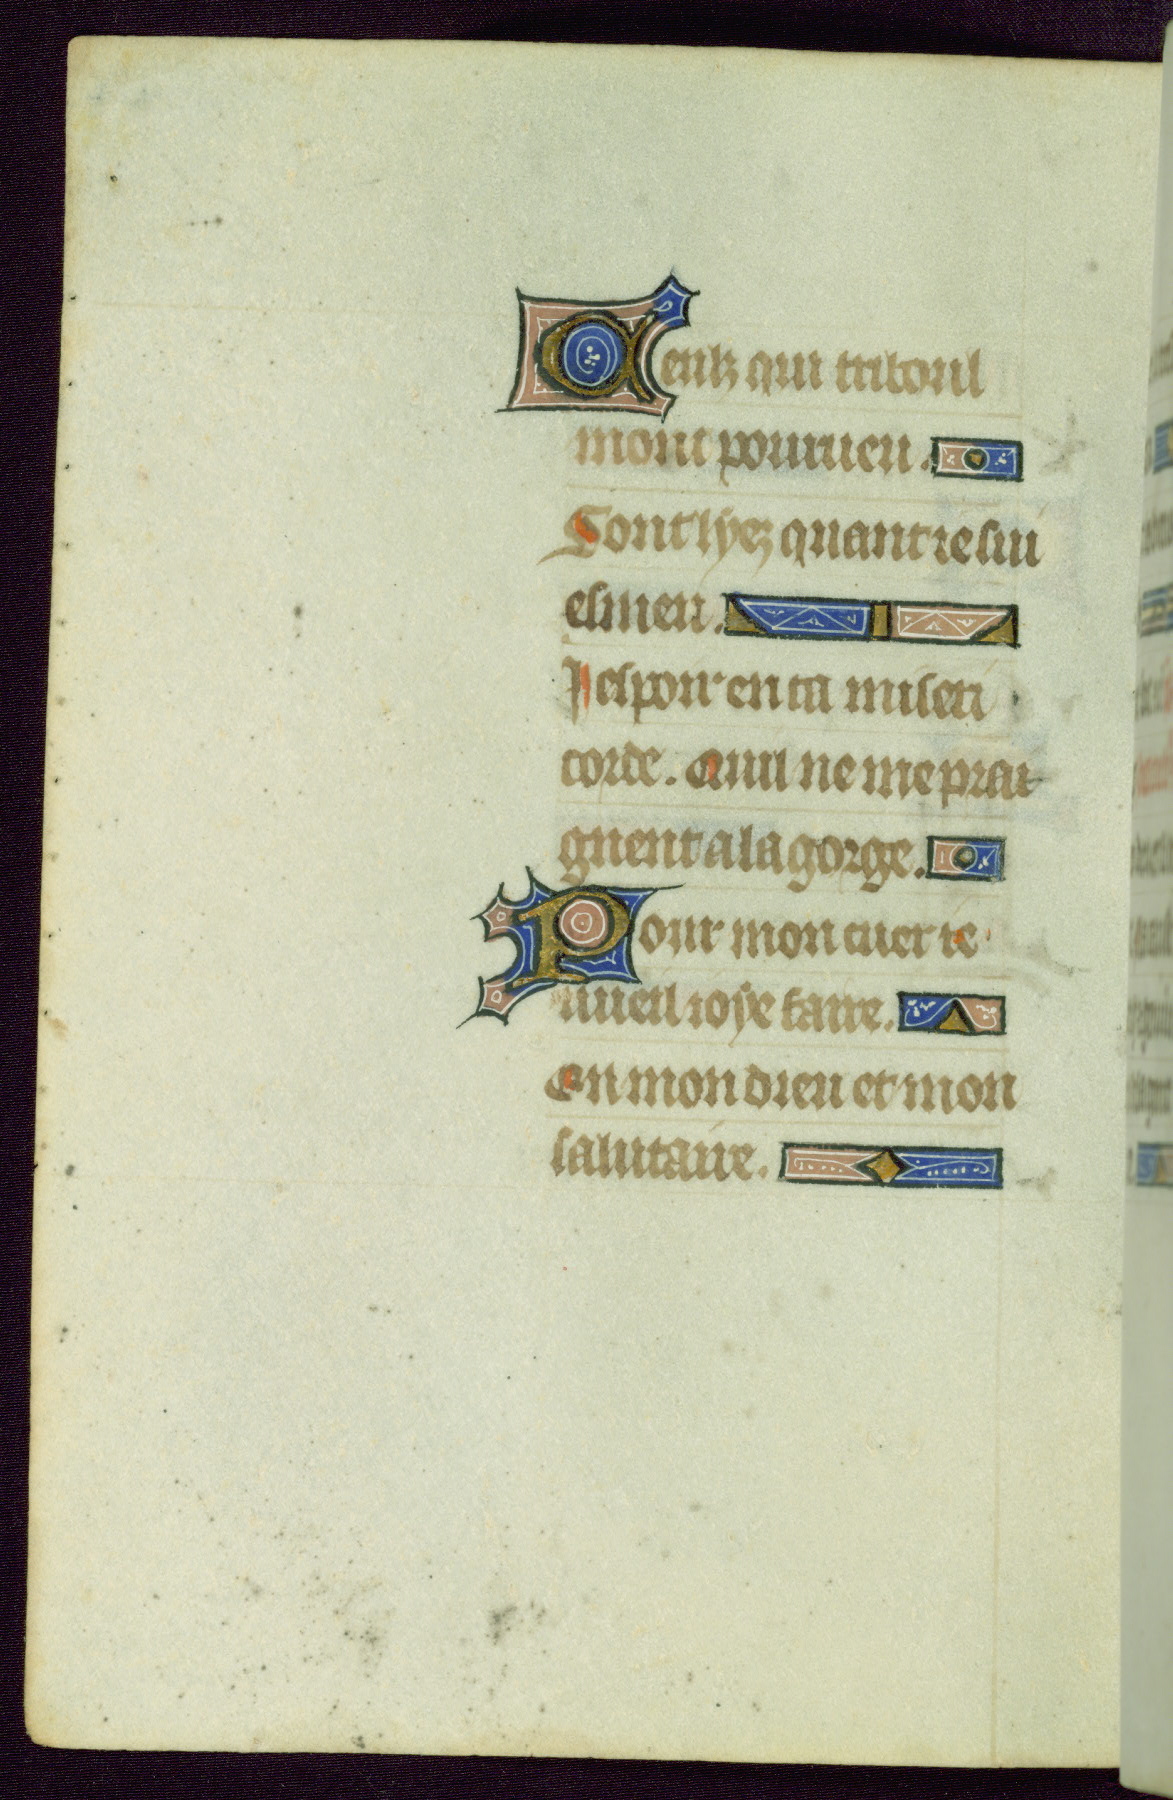 Ceulz qui triboul
mont pourueu.
Sont lyez quant ie sui
esmeu.
Iespoir en ta miseri
corde. Quil ne me prai
gnent a la gorge.
Pour mon cuer ie
vueil ioye faire.
En mon dieu et mon
salutaire.